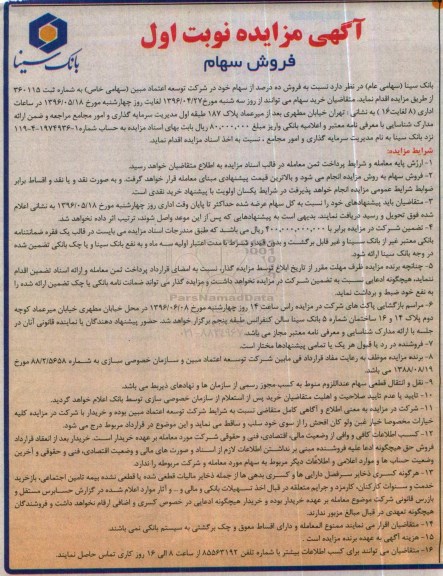 آگهی مزایده نوبت اول
فروش سهام
بانک سینا
بانک سینا (سهامی عام) در نظر دارد نسبت به فروش ده درصد از سهام خود در شرکت توسعه اعتماد مبین (سهامی خاص) به شماره ثبت ۳۶۰۱۱۵
از طریق مزایده اقدام نماید. متقاضیان خرید سهام می توانند از روز سه شنبه مورخ ۱۳۹۶/۰۴/۲۷ لغایت روز چهارشنبه مورخ ۱۳۹۶/۰۵/۱۸ در ساعات
اداری (۸ لغایت ۱۶) به نشانی : تهران خیابان مطهری بعد از میرعماد پلاک ۱۸۷ طبقه اول مدیریت سرمایه گذاری و امور مجامع مراجعه و ضمن ارائه
مدارک شناسایی یا معرفی نامه معتبر و اعلامیه بانکی واریز مبلغ ۸۰۰،۰۰۰ ریال بابت بهای اسناد مزایده به حساب شماره ۱-۱۹۷۴۹۳۶-۴-۱۱۹
نزد بانک سینا به نام مدیریت سرمایه گذاری و امور مجامع ، نسبت به اخذ اسناد مزایده اقدام نماید.
شرایط مزایده:
۱- ارزش پایه معامله و شرایط پرداخت ثمن معامله در قالب اسناد مزایده به اطلاع متقاضیان خواهد رسید.
۲- فروش سهام به روش مزایده انجام می شود و بالاترین قیمت پیشنهادی مبنای معامله قرار خواهد گرفت. و به صورت نقد و یا نقد و اقساط برابر
ضوابط شرایط عمومی مزایده انجام خواهد پذیرفت در شرایط یکسان اولویت با پیشنهاد خرید نقدی است.
۳- متقاضیان باید پیشنهادهای خود را نسبت به کل سهام عرضه شده حداکثر تا پایان وقت اداری روز چهارشنبه مورخ ۱۳۹۶/۰۵/۱۸ به نشانی اعلام
شده فوق تحویل و رسید دریافت نمایند. بدیهی است به پیشنهادهایی که پس از این موعد واصل شوند، ترتیب اثر داده نخواهد شد.
۴- تضمین شرکت در مزایده برابر با ۴۰۰،۰۰۰،۰۰۰،۰۰۰ ریال می باشد که طبق مندرجات اسناد مزایده می بایست در قالب یک فقره ضمانتنامه
بانکی معتبر غیر از بانک سینا و غیر قابل برگشت و بدون قید و شرط با مدت اعتبار اولیه سه ماه و به نفع بانک سینا و یا چک بانکی تضمین شده
در وجه بانک سینا ارائه شود.
۵- چنانچه برنده مزایده ظرف مهلت مقرر از تاریخ ابلاغ توسط مزایده گذار، نسبت به امضای قرارداد پرداخت ثمن معامله و ارائه اسناد تضمین اقدام
ننماید، هیچگونه ادعایی نسبت به تضمین شرکت در مزایده نخواهد داشت و مزایده گذار می تواند ضمانت نامه بانکی یا چک تضمین ارائه شده را
به نفع خود ضبط و برداشت نماید.
۶- مراسم بازگشایی پاکت های شرکت در مزایده راس ساعت ۱۴ روز چهارشنبه مورخ ۱۳۹۶/۰۶/۰۸ در محل خیابان مطهری خیابان میرعماد کوچه
دوم پلاک ۱۴ و ۱۶ ساختمان شماره ۵ بانک سینا سالن کنفرانس طبقه پنجم برگزار خواهد شد. حضور پیشنهاد دهندگان یا نماینده قانونی آنان در
جلسه با ارائه مدارک شناسایی و معرفی نامه معتبر مجاز می باشد.
۷- فروشنده در رد یا قبول هر یک یا تمامی پیشنهادها مختار است.
۸- برنده مزایده موظف به رعایت مفاد قرارداد فی مابین شرکت توسعه اعتماد مبین و سازمان خصوصی سازی به شماره ۸۸/۲/۵۶۵۸ مورخ
۱۳۸۸/۰۸/۱۹ می باشد.
۹- نقل و انتقال قطعی سهام عنداللزوم منوط به کسب مجوز رسمی از سازمان ها و نهادهای ذیربط می باشد.
۱۰- تایید یا عدم تایید صلاحیت و اهلیت متقاضیان خرید پس از استعلام از سازمان خصوصی سازی توسط بانک اعلام خواهد گردید.
۱۱- شرکت در مزایده به معنی اطلاع و آگاهی کامل متقاضی نسبت به شرایط شرکت توسعه اعتماد مبین بوده و خریدار با شرکت در مزایده کلیه
خیارات مخصوصا خیار غبن ولو کان افحش را از سوی خود سلب و ساقط می نماید و این موضوع در قرارداد مربوط درج می شود.
۱۲- کسب اطلاعات کافی و وافی از وضعیت مالی، اقتصادی، فنی و حقوقی شرکت مورد معامله بر عهده خریدار است. خریدار بعد از انعقاد قرارداد
فروش حق هیچگونه ادعا علیه فروشنده مبنی بر نداشتن اطلاعات لازم از اسناد و صورت های مالی و وضعیت اقتصادی، فنی و حقوقی و آخرین
وضعیت حساب ها و موارد اعلامی و اطلاعات دیگر مربوط به سهام مورد معامله و شرکت مربوطه را ندارد.
۱۳- هرگونه کسری ذخایر سرفصل دارایی ها و کسری بدهی ها از جمله ذخایر مالیات قطعی شده یا قطعی نشده بیمه تامین اجتماعی، بازخرید
خدمت و سنوات کارکنان، کارمزد و جرایم متعلقه در قبال اخذ تسهیلات بانکی و مالی و ... و آثار موارد اعلام شده در گزارش حسابرس مستقل و
بازرس قانونی شرکت موضوع معامله بر عهده خریدار بوده و خریدار هیچگونه ادعایی در خصوص کسری و اضافی ارقام نخواهد داشت و فروشندگان
هیچگونه تعهدی در قبال مبالغ مزبور ندارند.
۱۴- متقاضیان اقرار می نمایند ممنوع المعامله و دارای اقساط معوق و چک برگشتی به سیستم بانکی نمی باشند.
۱۵- هزینه آگهی به عهده برنده مزایده است .
۱۶- متقاضیان می توانند برای کسب اطلاعات بیشتر با شماره تلفن ۸۵۵۶۳۱۹۲ از ساعت ۸ الی ۱۶ روز کاری تماس حاصل نمایند.